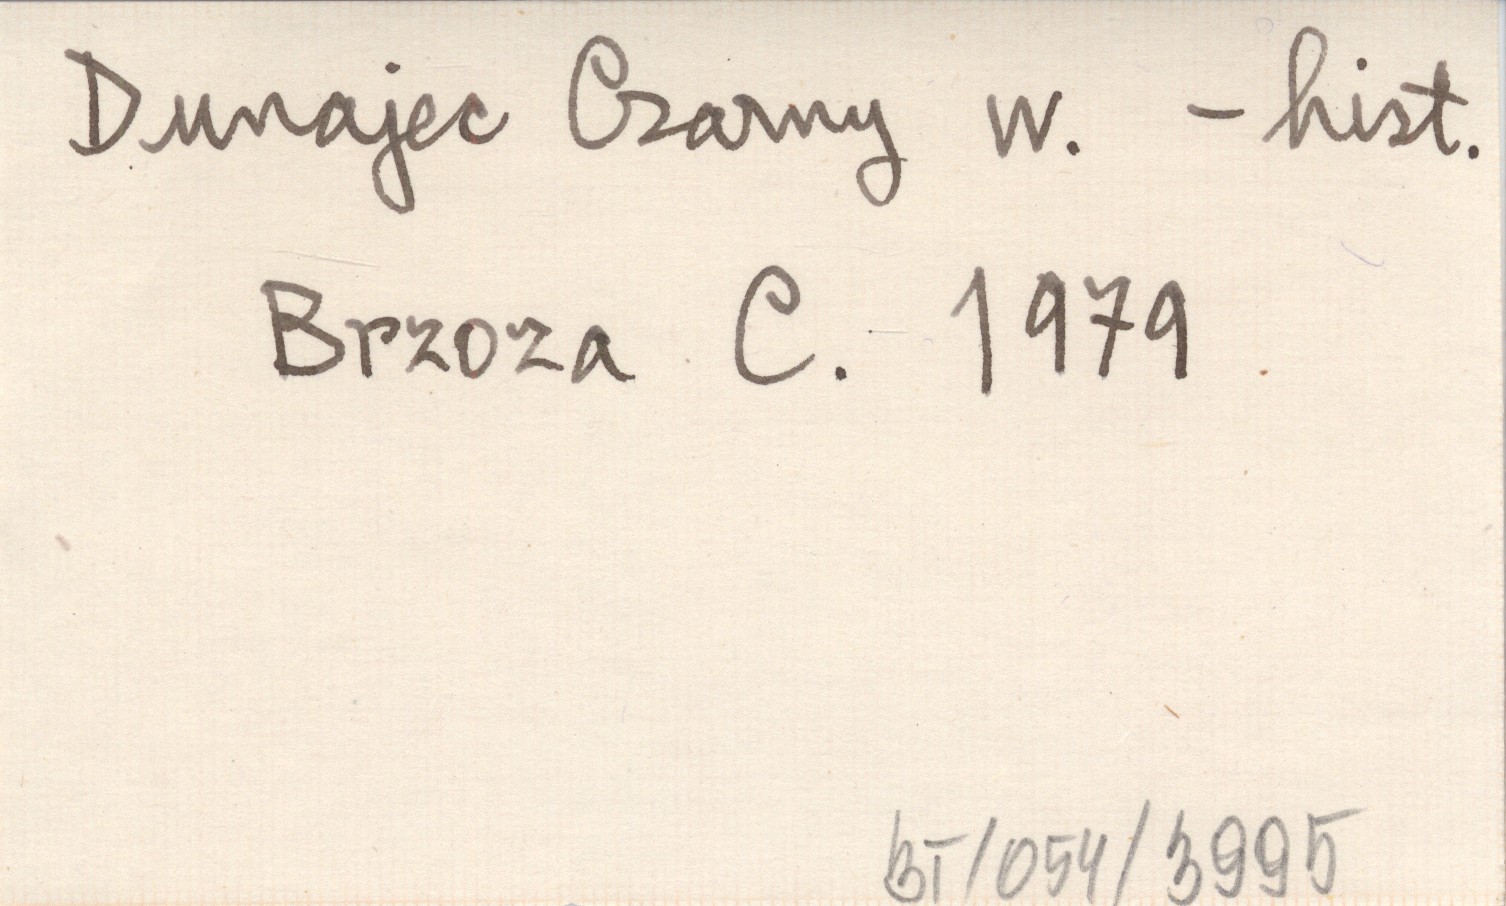 Dunajec Czarny w. - hist.
Brzoza C. 1979
BT/054/3995